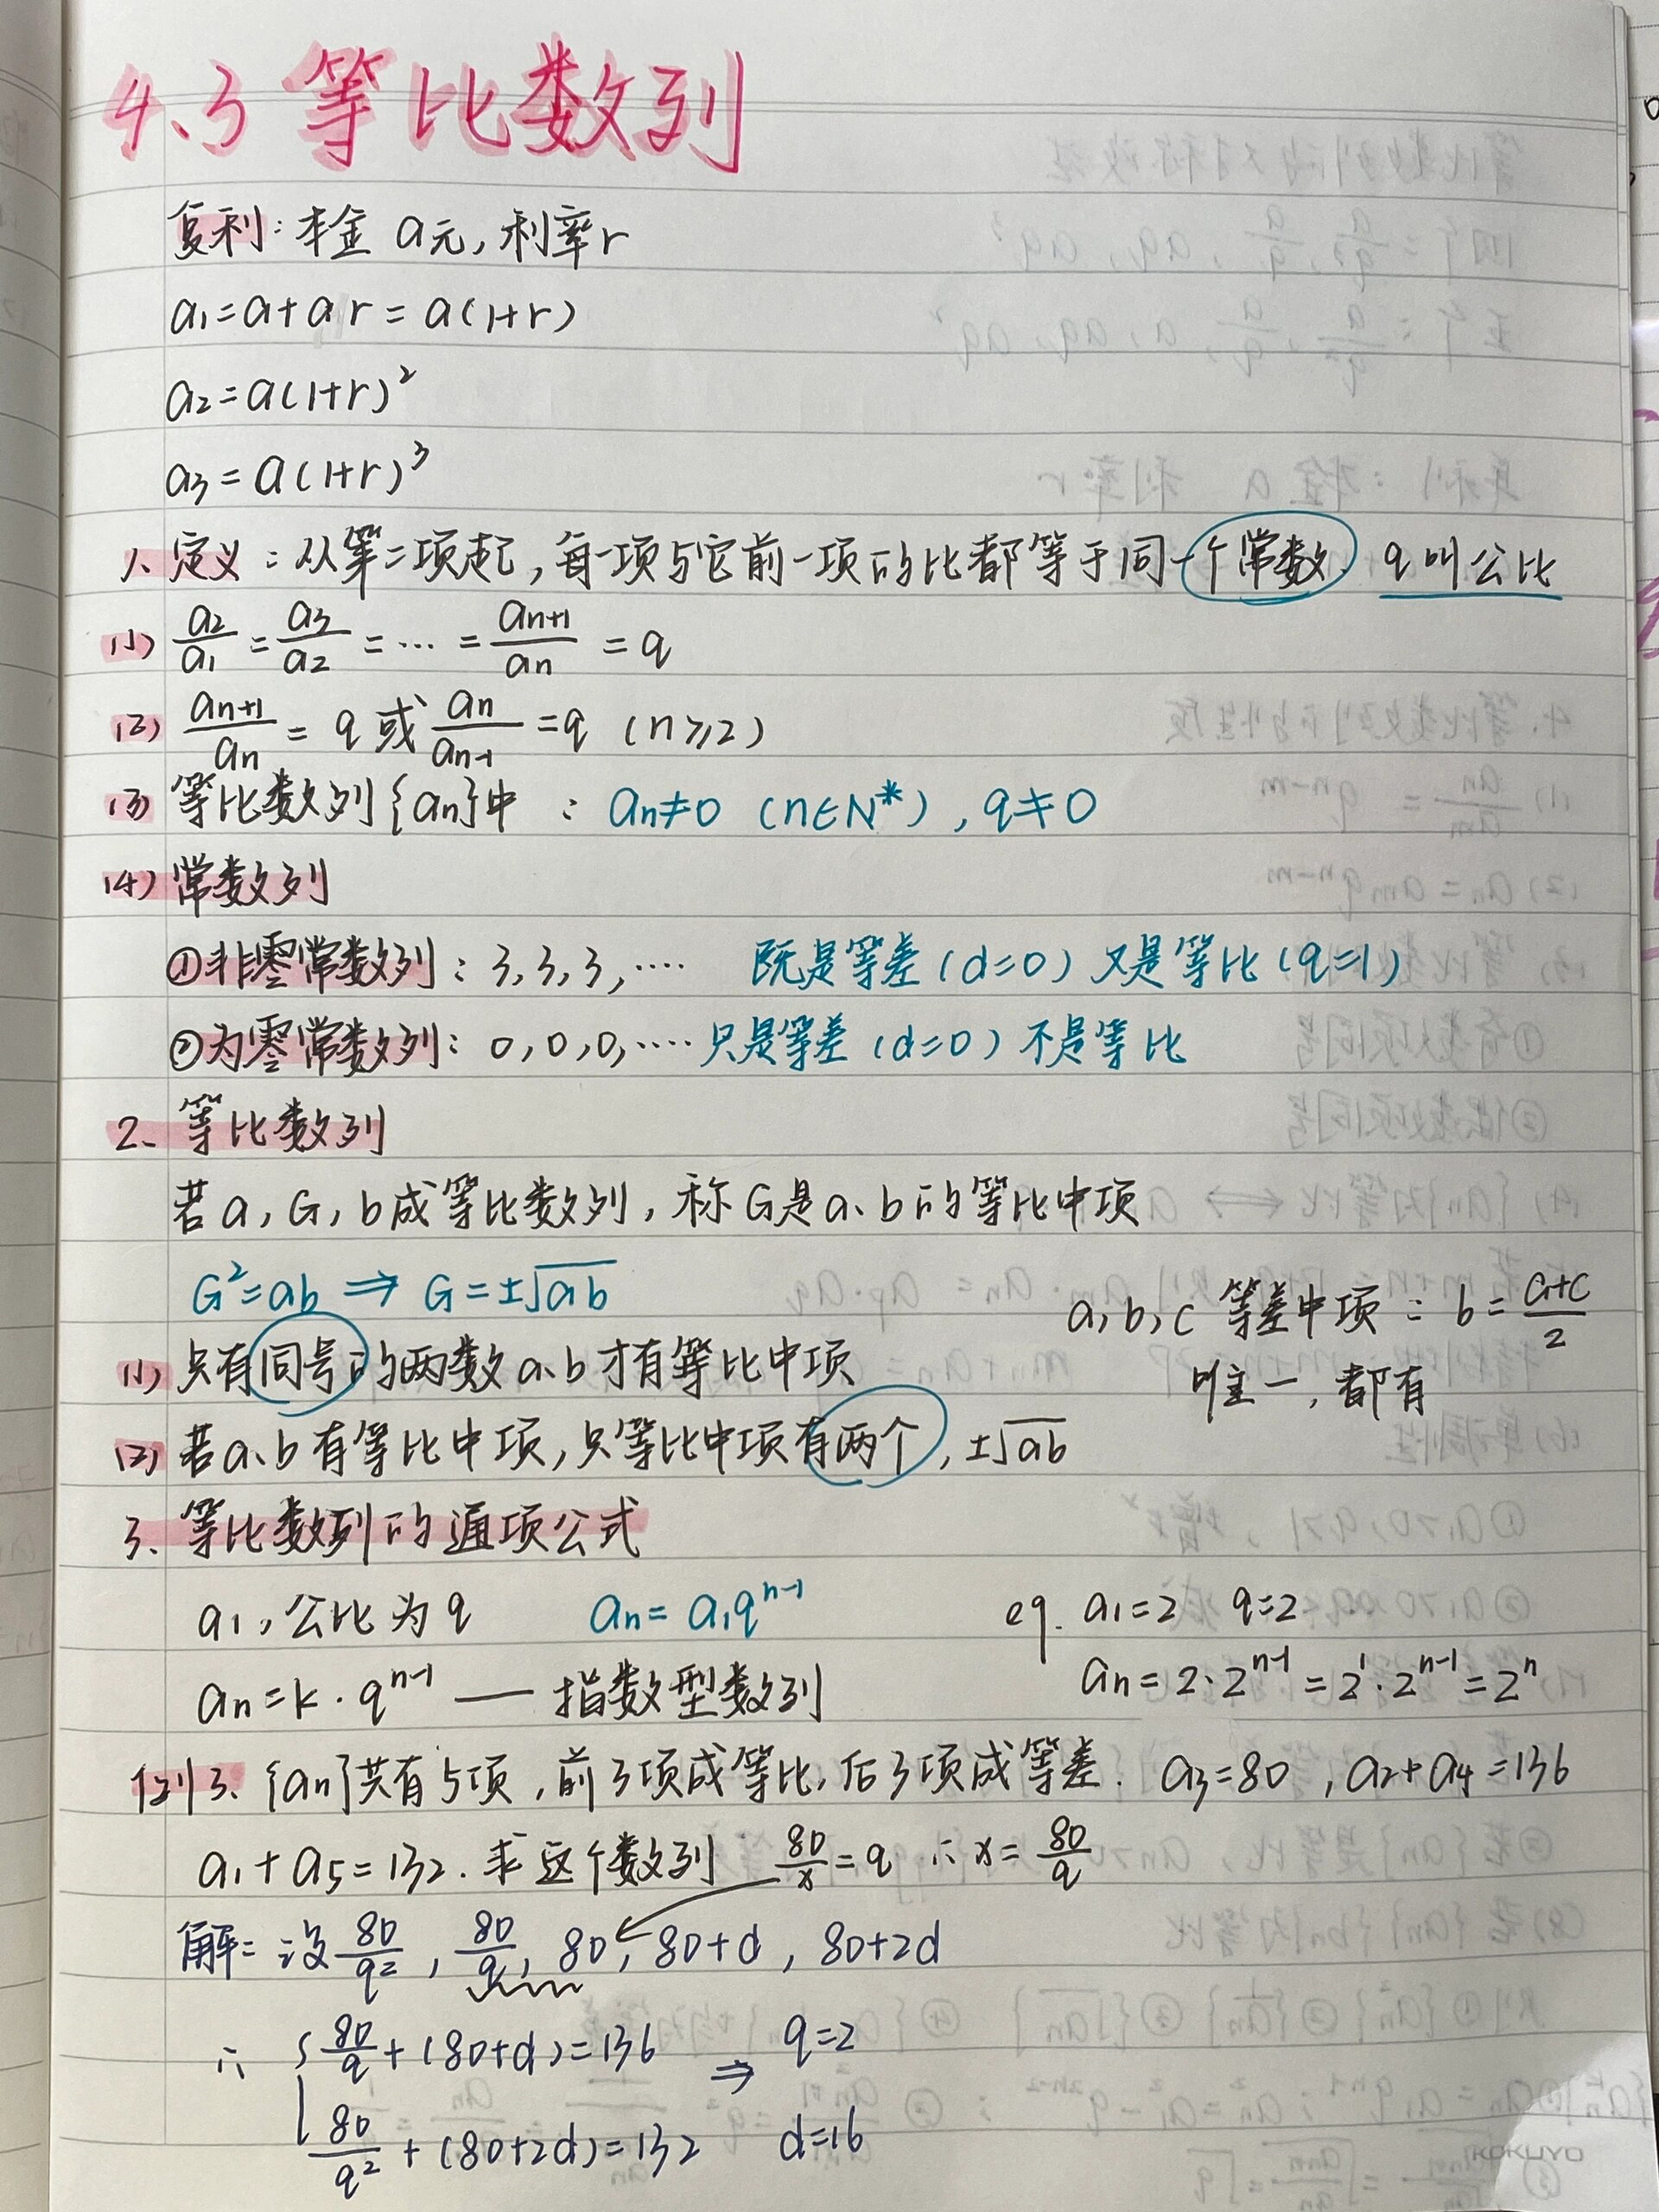 4.3 等比数列
复利：本金 a元，利率r
a₁=a+ar=a(1+r)
a₂=a(1+r)²
a₃=a(1+r)³
1、定义：从第二项起，每一项与它前一项的比都等于同一个常数. q叫公比
(1) a₂/a₁=a₃/a₂=…=aₙ₊₁/aₙ=q
(2) aₙ₊₁/aₙ=q或aₙ/aₙ₋₁=q (n≥2)
(3) 等比数列{aₙ}中：aₙ≠0 (n∈N*), q≠0
(4) 常数列
①非零常数列：3,3,3,…. 既是等差(d=0)又是等比(q=1)
②为零常数列：0,0,0,….只是等差(d=0)不是等比
2、等比数列
若a,G,b成等比数列，称G是a、b的等比中项
G²=ab⇒G=±√ab
a,b,c 等差中项：b=(a+c)/2
唯一，都有
(1) 只有同号的两数a、b才有等比中项
(2) 若a、b有等比中项，只等比中项有两个，±√ab
3、等比数列的通项公式
a₁，公比为q aₙ=a₁qⁿ⁻¹
eg. a₁=2 q=2
aₙ=k·qⁿ⁻¹ — 指数型数列
aₙ=2·2ⁿ⁻¹=2¹·2ⁿ⁻¹=2ⁿ
例3、{aₙ}共有5项，前3项成等比，后3项成等差. a₃=80，a₂+a₄=136
a₁+a₅=132.求这个数列 80/x=q ∴x=80/q
解：设80/q²，80/q，80，80+d，80+2d
∴ {80/q+(80+d)=136 ⇒ q=2
80/q²+(80+2d)=132 d=16
KOKUYO